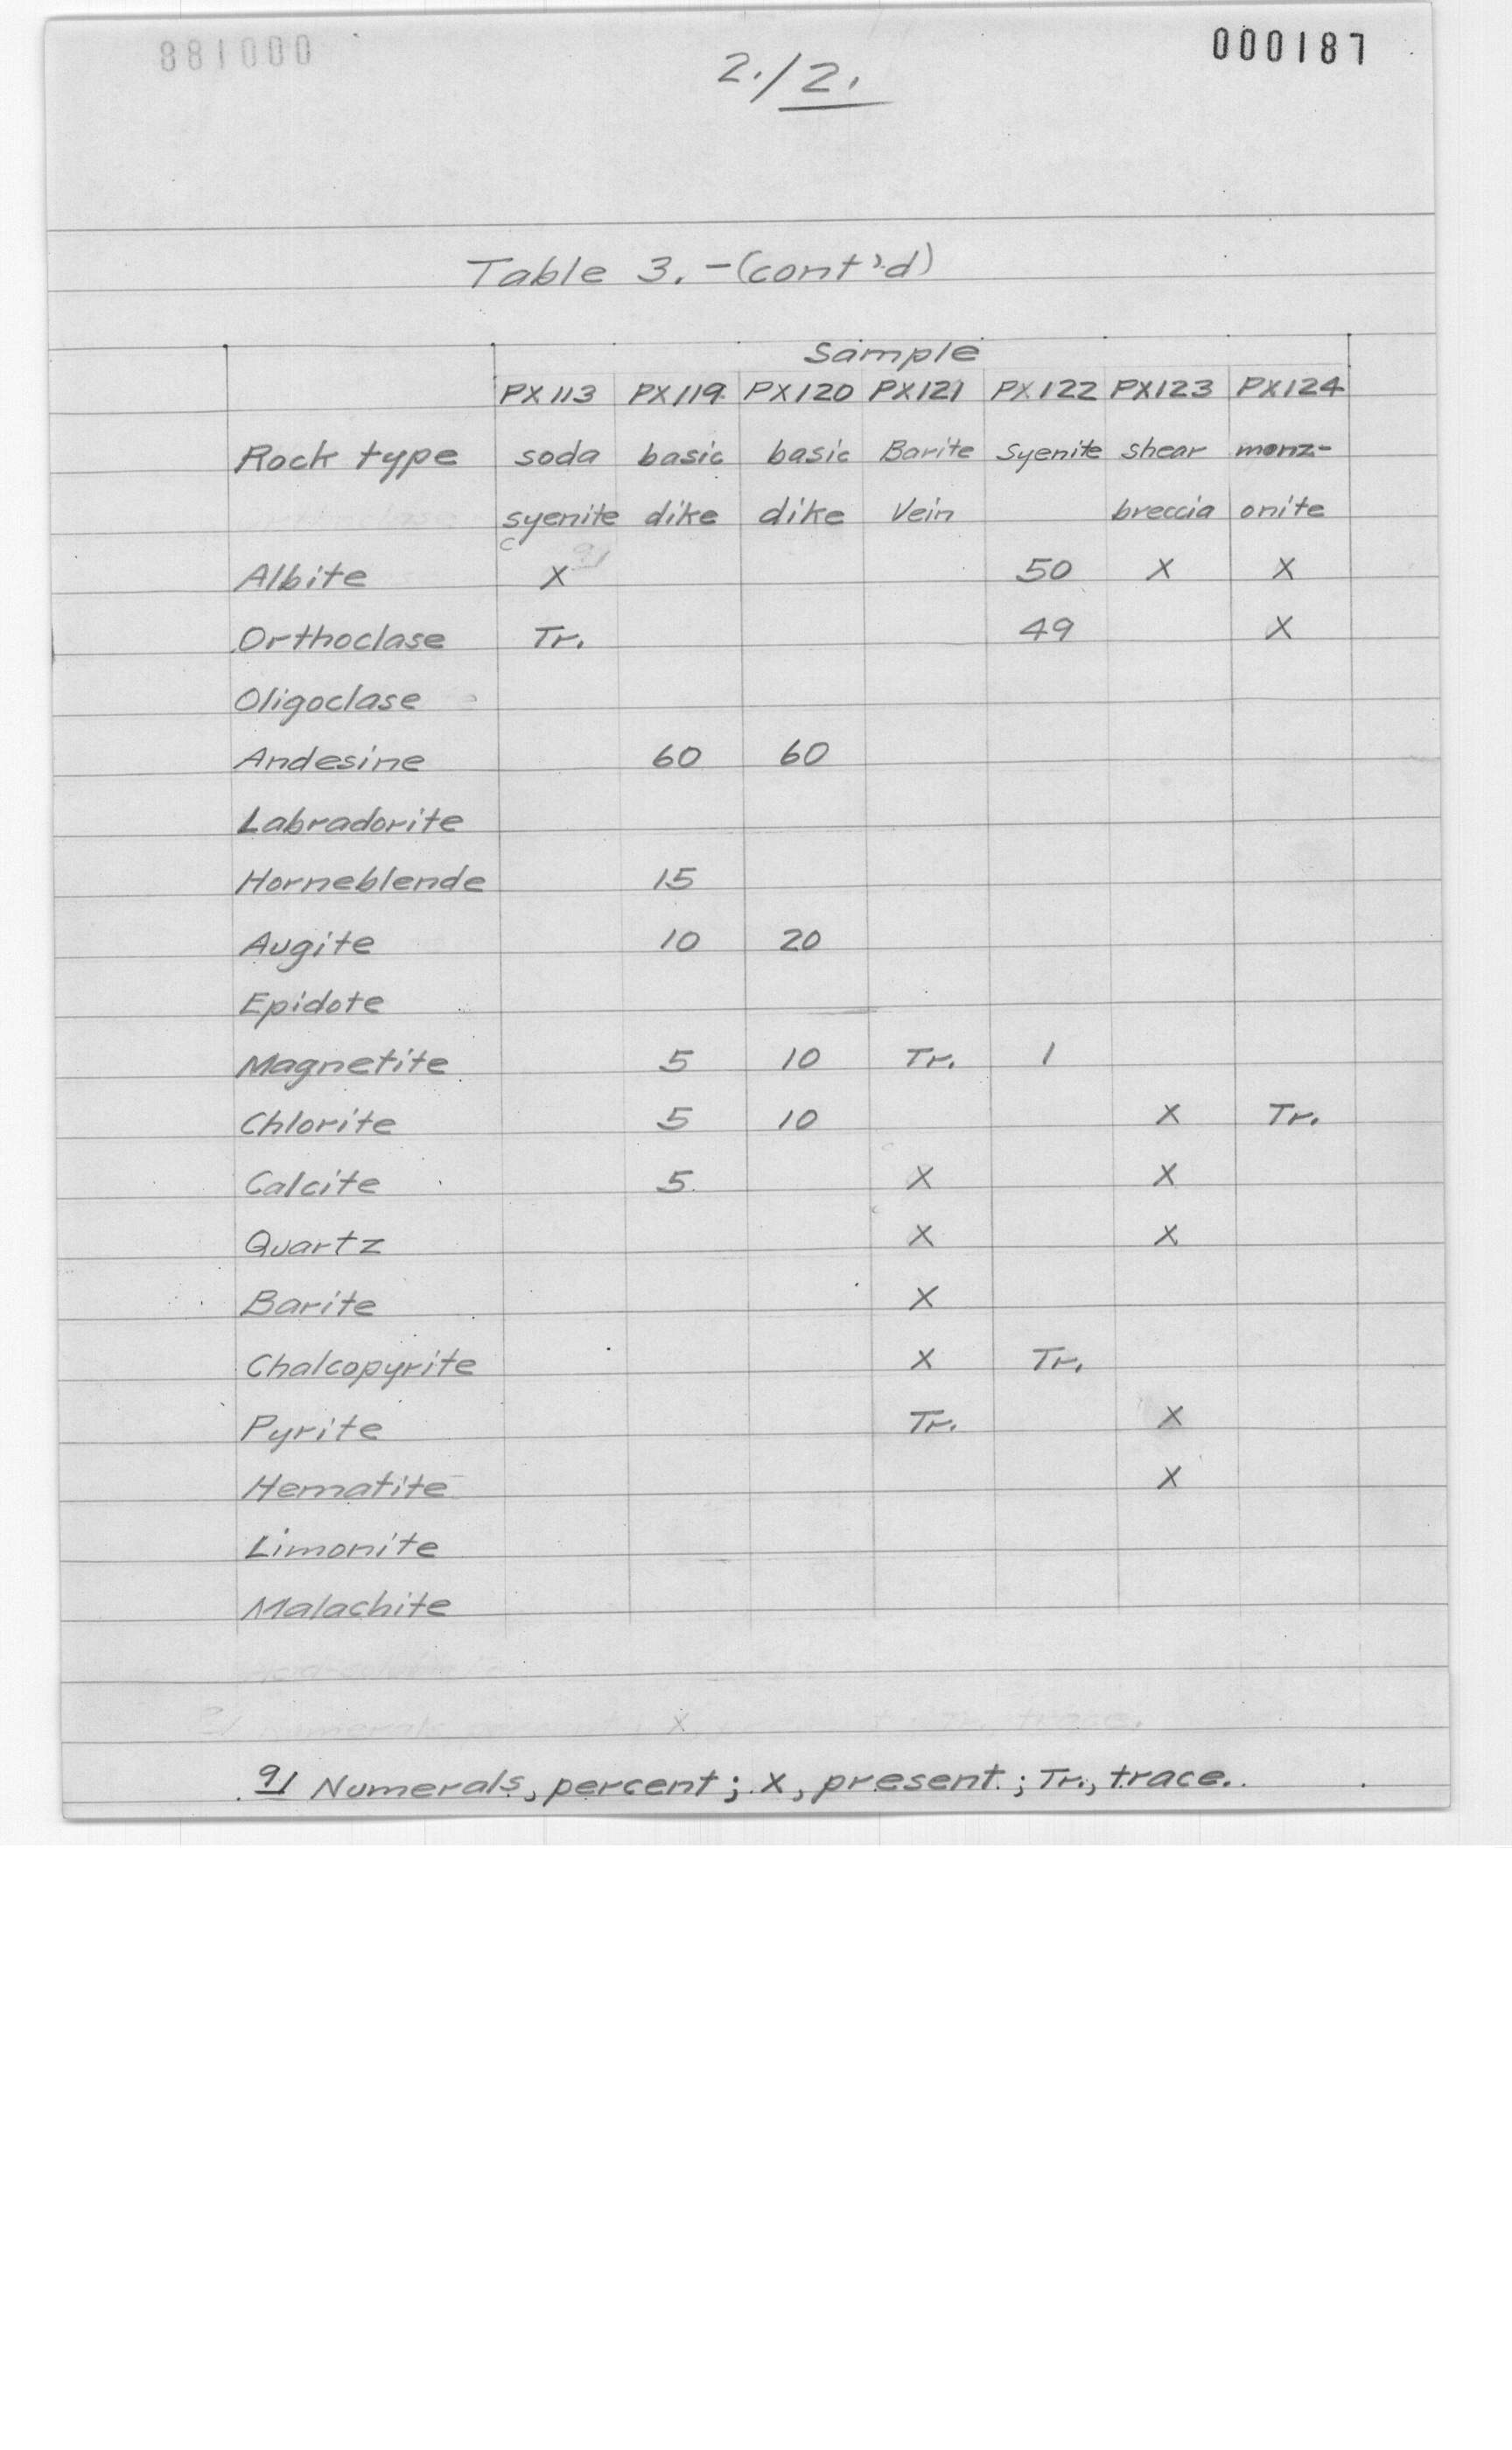 881000
000187
2./2.
Table 3. -(cont'd)
Sample
PX113 PX119 PX120 PX121 PX122 PX123 PX124
Rock type soda basic basic Barite Syenite shear monz-
syenite dike dike Vein breccia onite
Albite X 9/ 50 X X
Orthoclase Tr. 49 X
Oligoclase
Andesine 60 60
Labradorite
Horneblende 15
Augite 10 20
Epidote
Magnetite 5 10 Tr. 1
Chlorite 5 10 X Tr.
Calcite 5 X X
Quartz X X
Barite X
Chalcopyrite X Tr.
Pyrite Tr. X
Hematite X
Limonite
Malachite
9/ Numerals, percent; X, present; Tr., trace.